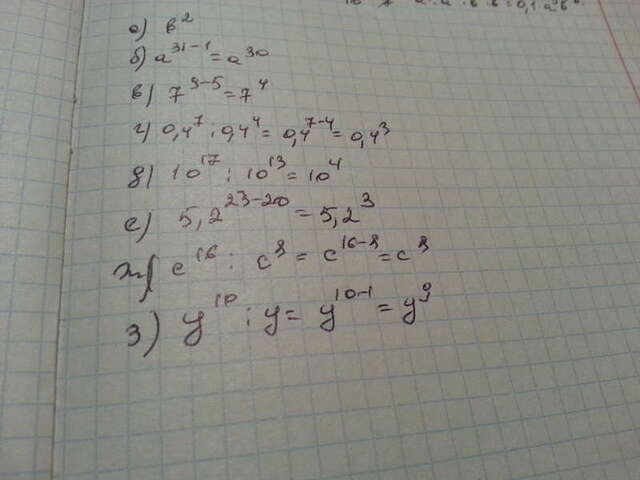 а) в²
б) a³¹⁻¹ = a³⁰
в) 7⁹⁻⁵ = 7⁴
г) 0,4⁷ : 0,4⁴ = 0,4⁷⁻⁴ = 0,4³
д) 10¹⁷ : 10¹³ = 10⁴
е) 5,2²³⁻²⁰ = 5,2³
ж) c¹⁶ : c⁸ = c¹⁶⁻⁸ = c⁸
з) y¹⁰ : y = y¹⁰⁻¹ = y⁹